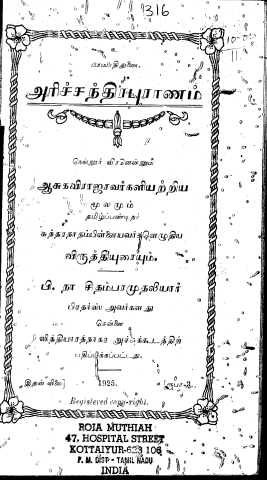 316
உ
அரிச்சந்திரபுராணம்
நெல்லூர் வீரனென்னும்
ஆசுகவிராஜரவர்களியற்றிய
மூலமும்
தமிழ்ப்பண்டிதர்
சுந்தரநாதம்பிள்ளையவர்களெழுதிய
விருத்தியுரையும்.
பி. நா சிதம்பரமுதலியார்
பிரதர்ஸ் அவர்களது
சென்னை
வித்தியாரத்நாகர அச்சுக்கூடத்திற்
பதிப்பிக்கப்பட்டது.
1925.
இதன் விலை
Registered copy-right.
ROJA MUTHIAH
47, HOSPITAL STREET
KOTTAIYUR-623 106
P. M. DIST - TAMIL NADU
INDIA